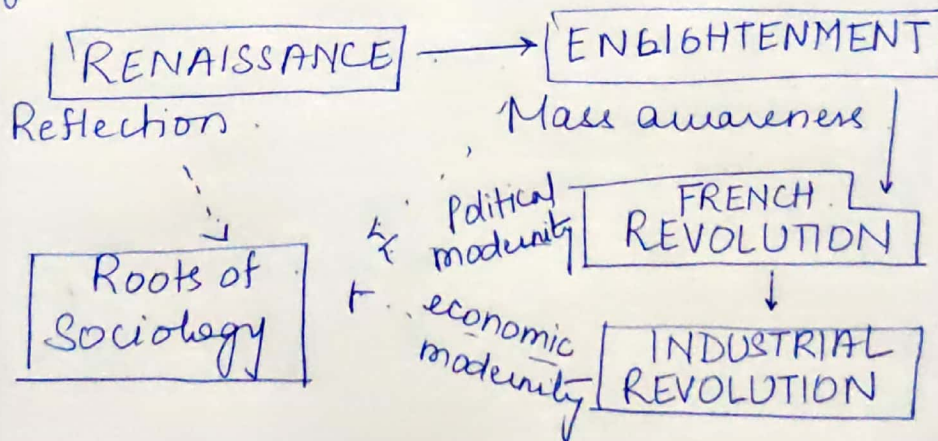 RENAISSANCE
ENLIGHTENMENT
Reflection
Mass awareness
Political
modernity
FRENCH
REVOLUTION
Roots of
Sociology
economic
modernity
INDUSTRIAL
REVOLUTION